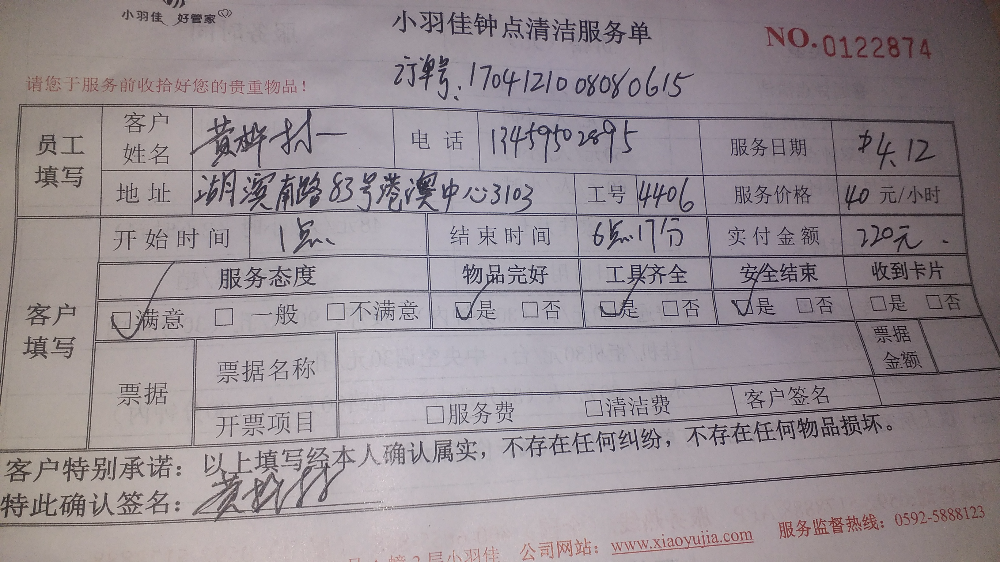 小羽佳 好管家
小羽佳钟点清洁服务单
NO.0122874
请您于服务前收拾好您的贵重物品！
订单号：1704121008080615
员工填写 客户姓名 电话 13459502895 服务日期 4.12
地址 湖滨南路83号港澳中心3103 工号 4406 服务价格 40 元/小时
客户填写 开始时间 1点 结束时间 6点17分 实付金额 220元.
服务态度 物品完好 工具齐全 安全结束 收到卡片
☑满意 □ 一般 □不满意 ☑是 □否 ☑是 □否 ☑是 □否 □是 □否
票据 票据名称 票据金额
开票项目 □服务费 □清洁费 客户签名
客户特别承诺：以上填写经本人确认属实，不存在任何纠纷，不存在任何物品损坏。
特此确认签名：
2层小羽佳 公司网站：www.xiaoyujia.com 服务监督热线：0592-5888123